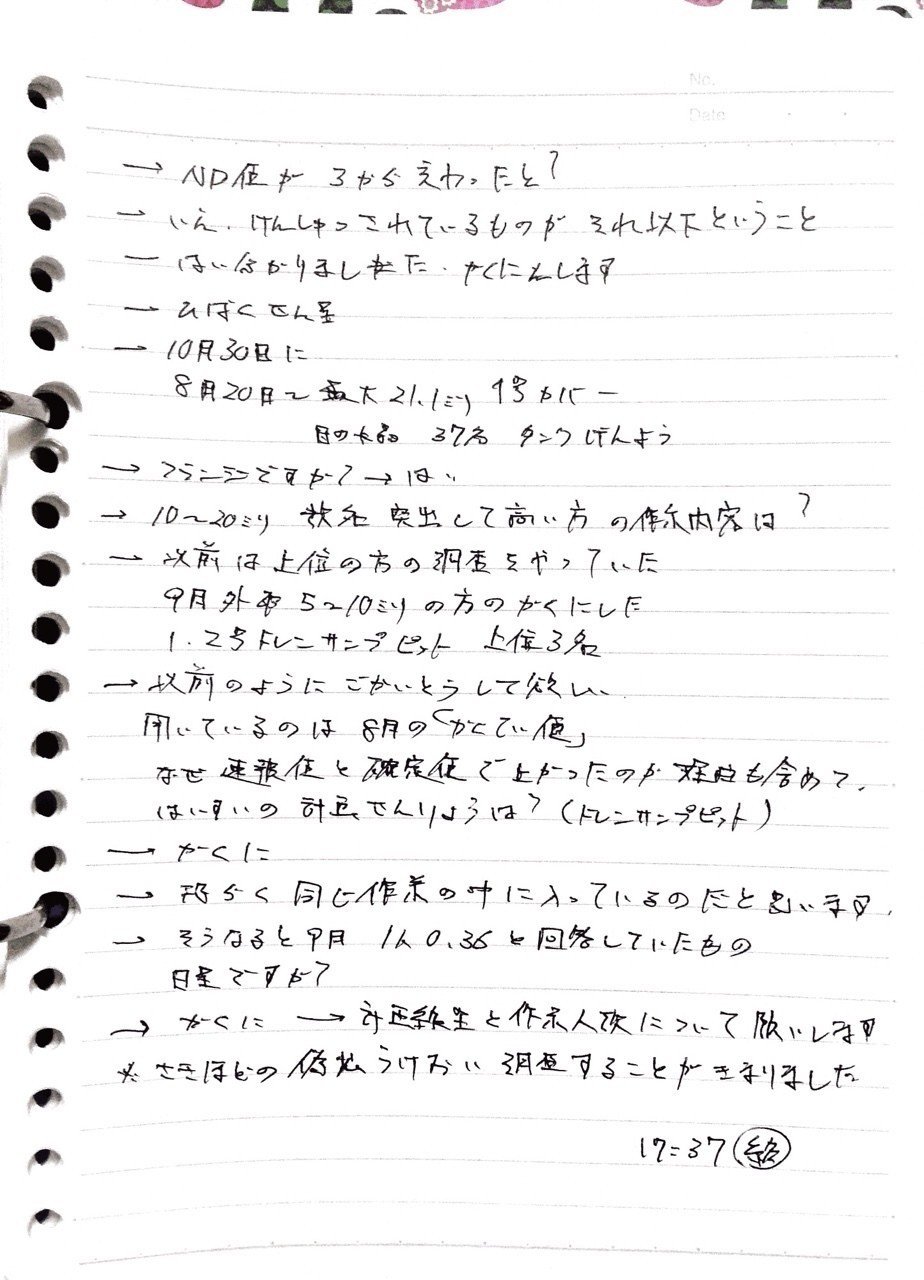 No.
Date
→ ND値が 3から変わったと?
→ いえ、けんしゅつされているものが それ以下ということ
ー はい分かりました、かくにんします
→ ひばくせん量
→ 10月30日に
8月20日〜 最大21.1ミリ 1号カバー
目の水晶 37名 タンクげんよう
→ フランジですか? → はい
→ 10〜20ミリ 数名 突出して高い方の作業内容は?
→ 以前は上位の方の調査をやっていた
9月外部 5〜10ミリの方のかくにした
1.2号ドレンサンプピット 上位3名
→ 以前のようにごかいとうして欲しい
用いているのは 8月の「かくてい値」
なぜ速報値と確定値で上がったのか 理由も含めて、
はいすいの計画せんりょうは?(ドレンサンプピット)
→ かくに
→ 恐らく同じ作業の中に入っているのだと思います、
→ そうなると9月 1人0.36と回答していたもの
日量ですか?
→ かくに → 計画線量と作業人数について願いします
※ さきほどの偽装うけおい 調査することがきまりました
17=37 終